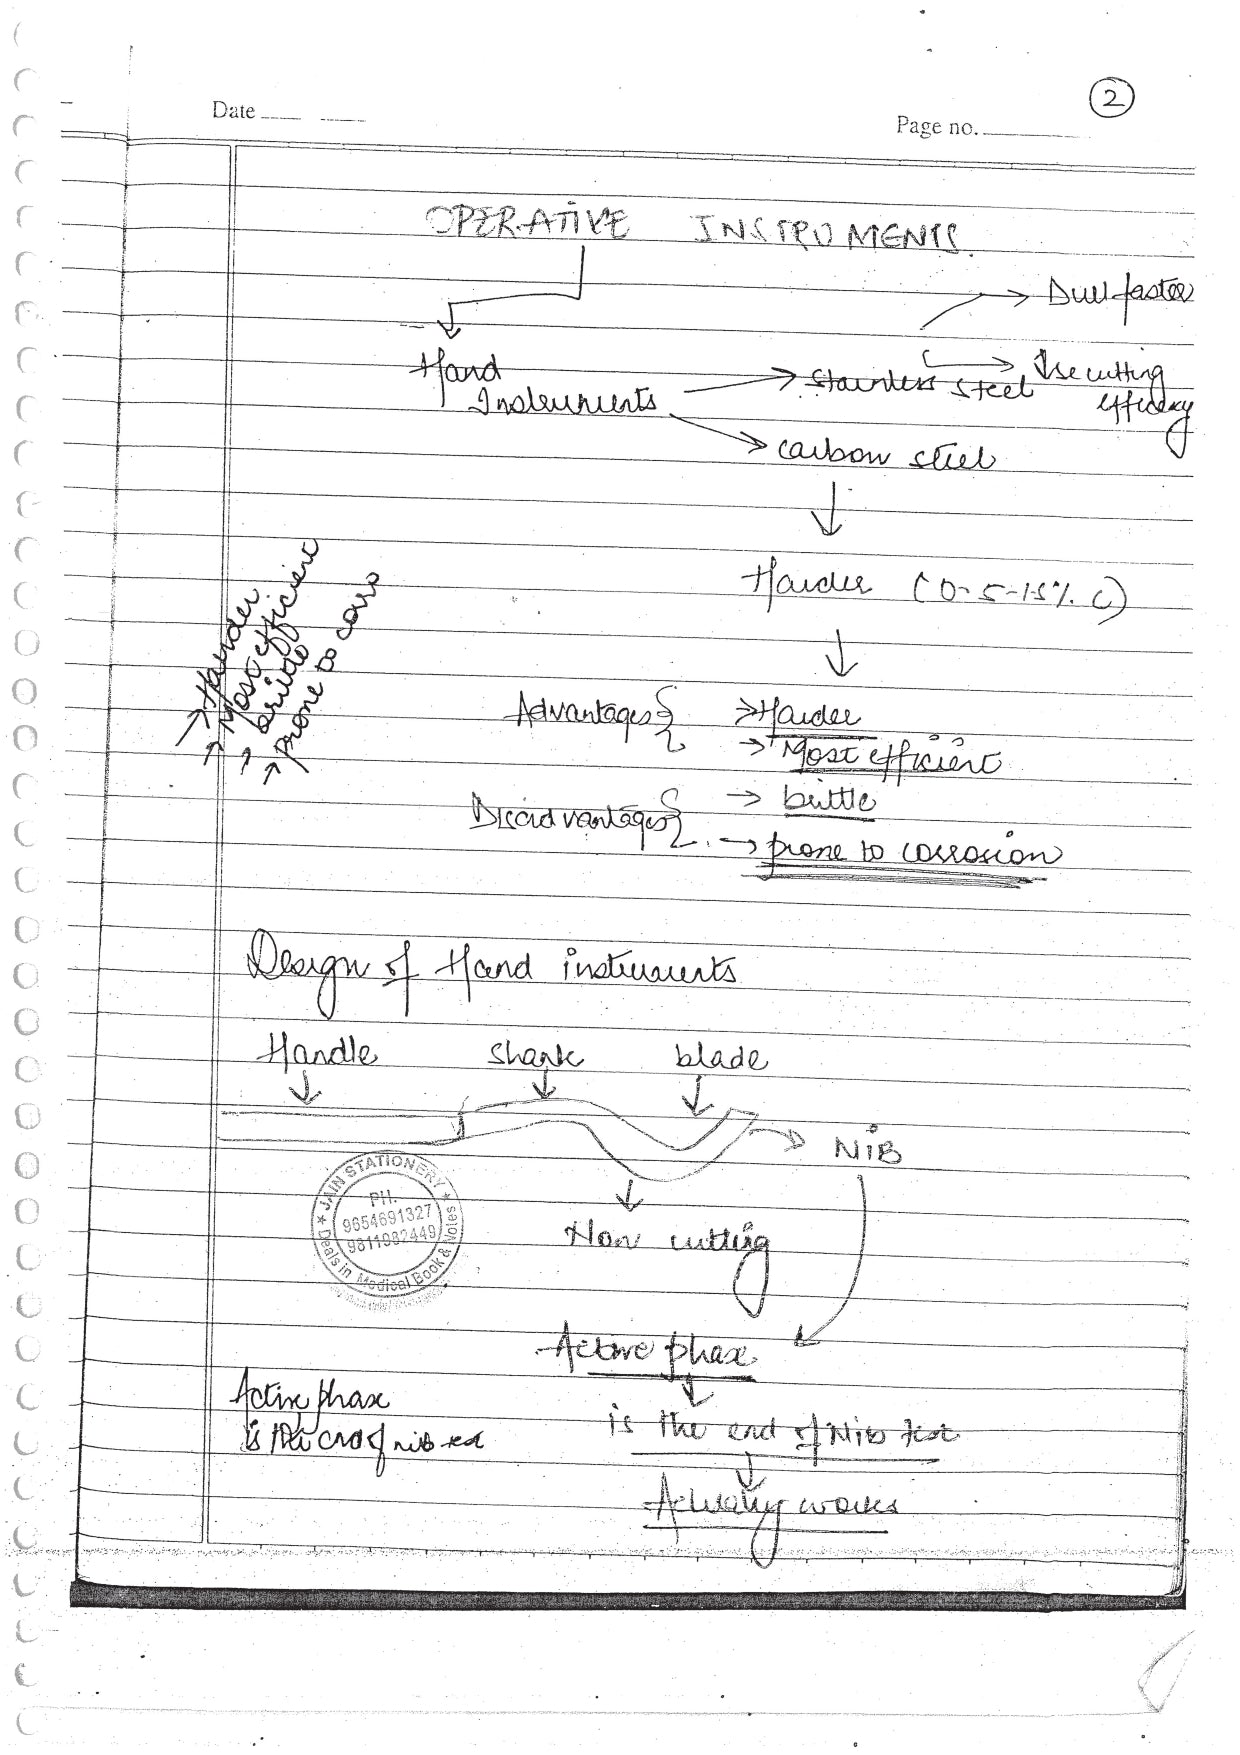 2
Date
Page no.
OPERATIVE INSTRUMENTS.
→ Dull faster
Hand
Instruments
→ stainless steel
→ ↓se cutting
efficiency
→ carbon steel
Harder (0.5-1.5% C)
Advantages { → Harder
→ Most efficient
Disadvantages { → brittle
→ prone to corrosion
→ Harder
→ Most efficient
→ brittle
→ prone to corro
Design of Hand instruments
Handle shank blade
→ NIB
Non cutting
JAIN STATIONERY
PH.
9654691327
9811982449
Deals in Medical Book & Notes
Active phase
is the end of Nib that
Actually works
Active phase
is the end of nib